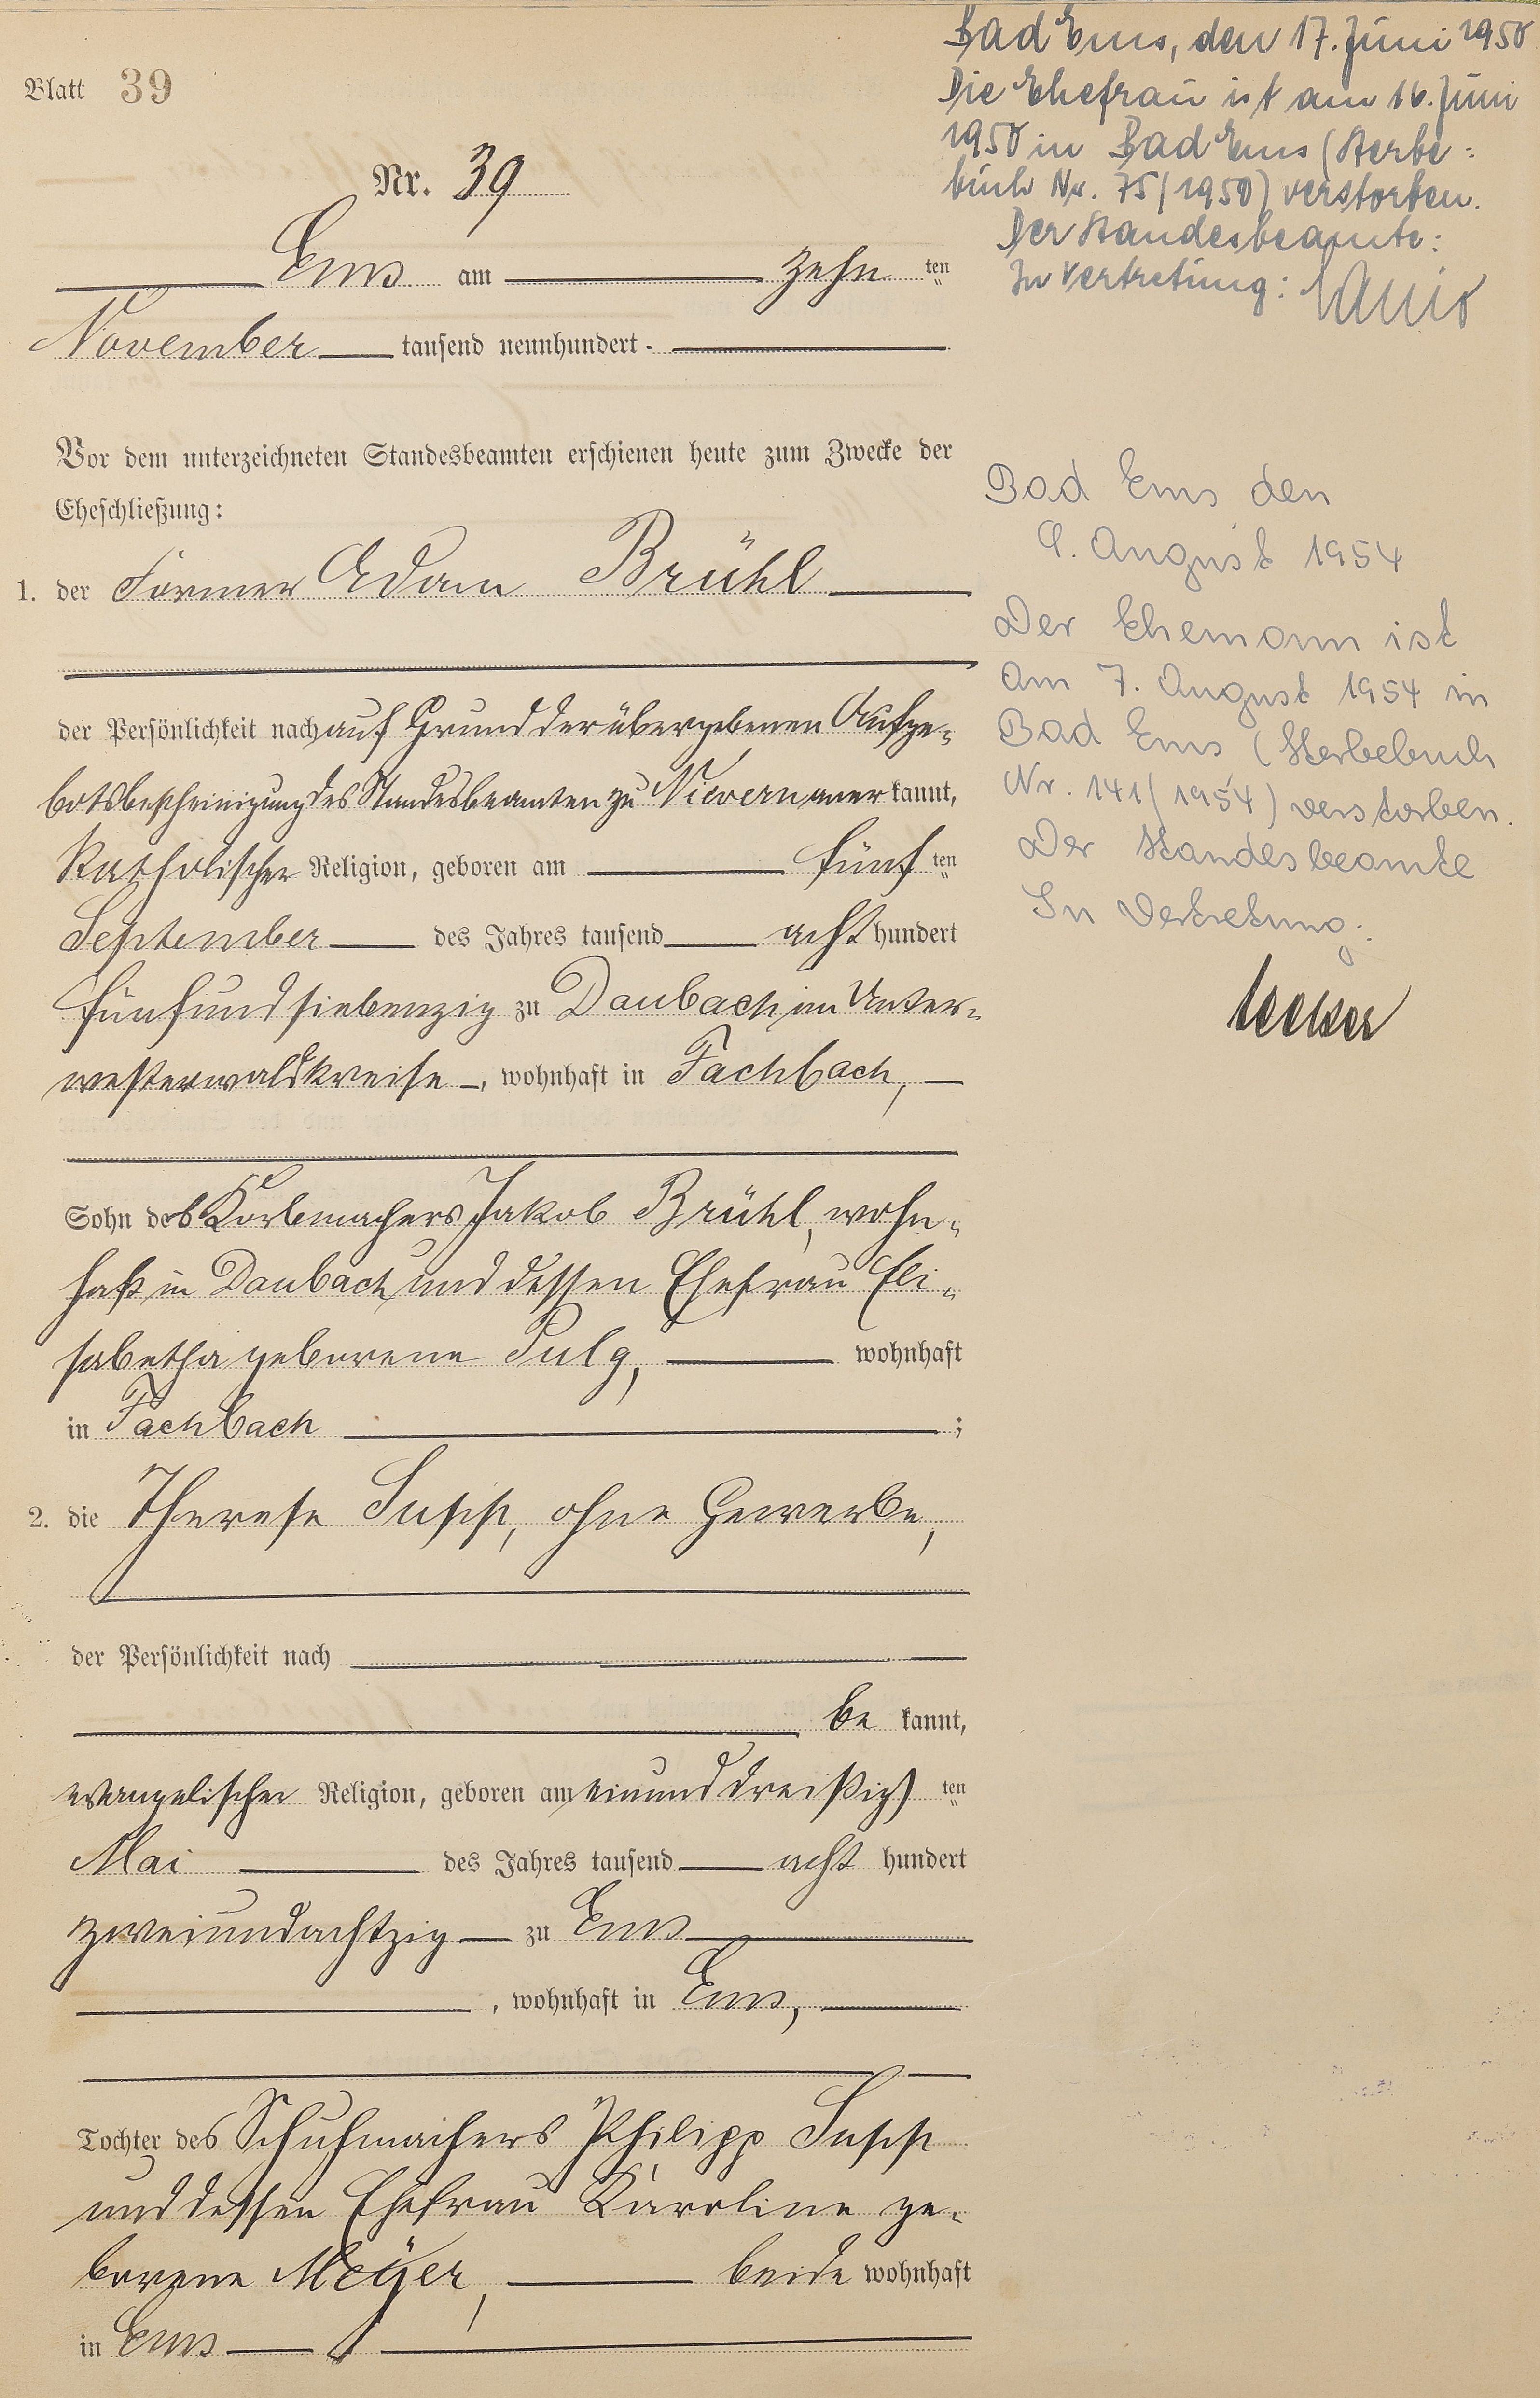 Blatt 39
Nr. 39
Ems am zehn ten
November tausend neunhundert
Vor dem unterzeichneten Standesbeamten erschienen heute zum Zwecke der
Eheschließung:
1. der Former Adam Brühl
der Persönlichkeit nach auf Grund der übergebenen Aufge-
botsbescheinigung des Standesbeamten zu Nievern aner kannt,
katholischer Religion, geboren am fünf ten
September des Jahres tausend acht hundert
fünfundsiebenzig zu Daubach im Unter-
westerwaldkreise, wohnhaft in Fachbach,
Sohn des Korbmachers Jakob Brühl, wohn-
haft in Daubach und dessen Ehefrau Eli-
sabetha geborene wohnhaft
in Fachbach ;
2. die Therese Supp, ohne Gewerbe,
der Persönlichkeit nach
be kannt,
evangelischer Religion, geboren am einunddreißig ten
Mai des Jahres tausend acht hundert
zweiundachtzig zu Ems
, wohnhaft in Ems,
Tochter des Schuhmachers Philipp Supp
und dessen Ehefrau Karoline ge-
borene Meyer, beide wohnhaft
in Ems
Bad Ems, den 17. Juni 1950
Die Ehefrau ist am 16. Juni
1950 in Bad Ems (Sterbe=
buch Nr. 75/1950) verstorben.
Der Standesbeamte:
In Vertretung:
Bad Ems den
9. August 1954
Der Ehemann ist
am 7. August 1954 in
Bad Ems (Sterbebuch
Nr. 141/1954) verstorben.
Der Standesbeamte
In Vertretung: